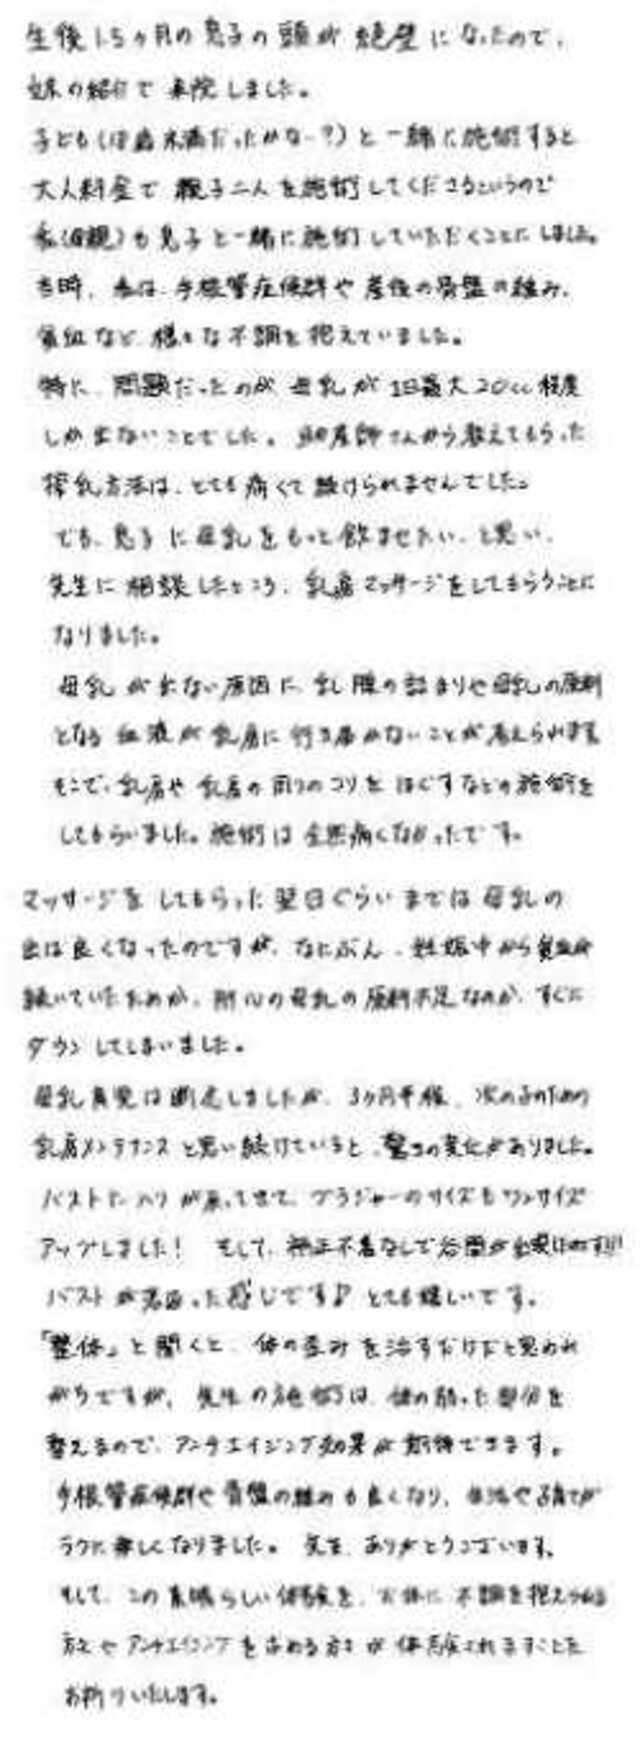 生後1.5ヶ月の息子の頭が絶壁になったので、
妹の紹介で来院しました。
子ども(は歳未満だったかな…?)と一緒に施術すると
大人料金で親子二人を施術してくださるというので
私(母親)も息子と一緒に施術していただくことにしました。
当時、私は、手根管症候群や産後の骨盤の緩み、
貧血など、様々な不調を抱えていました。
特に、問題だったのが母乳が1日最大20cc程度
しか出ないことでした。助産師さんから教えてもらった
授乳方法は、とても痛くて続けられませんでした。
でも、息子に母乳をもっと飲ませたい、と思い、
先生に相談したところ、乳房マッサージをしてもらうことに
なりました。
母乳が出ない原因に、乳腺の詰まりや母乳の原料
となる血液が乳房に行き届かないことが考えられます。
そこで、乳房や乳房の周りのコリをほぐすなどの施術を
してもらいました。施術は全然痛くなかったです。
マッサージをしてもらった翌日ぐらいまでは母乳の
出は良くなったのですが、なにぶん、妊娠中から貧血が
続いていたためか、肝心の母乳の原料不足なのか、すぐに
ダウンしてしまいました。
母乳育児は断念しましたが、3ヶ月半後、次の子のための
乳房メンテナンスと思い続けていると、驚きの変化がありました。
バストにハリが戻ってきて、ブラジャーのサイズもワンサイズ
アップしました! そして、補正下着なしで谷間が出来ます!!!
バストが若返った感じです♪ とても嬉しいです。
「整体」と聞くと、体の歪みを治すだけだと思われ
がちですが、先生の施術は、体の弱った部分を
整えるので、アンチエイジング効果が期待できます。
手根管症候群や骨盤の緩みも良くなり、生活や子育てが
ラクに楽しくなりました。先生、ありがとうございます。
そして、この素晴らしい体験を、お体に不調を抱えている
方々やアンチエイジングを求める方々が体験されますことを
お祈りいたします。